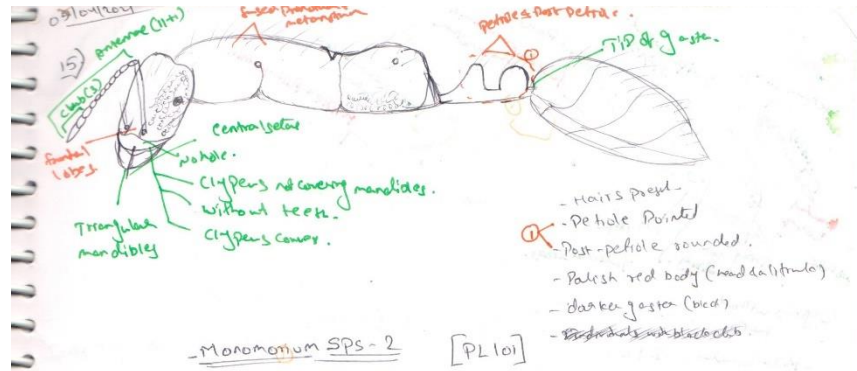 03/04/2021
15)
Antennae (11+1)
club(3)
metanotum
Petiole & Post Petiole.
①
Tip of gaster.
frontal
lobes
Central setae
No hole.
Clypeus not covering mandibles.
without teeth.
Clypeus convex.
Triangular
mandibles
- Hairs present
① - Petiole Pointed
- Post-petiole rounded.
- Palish red body (head & alitrunk)
- darker gaster (black)
- Monomorium SPS - 2
[PL101]